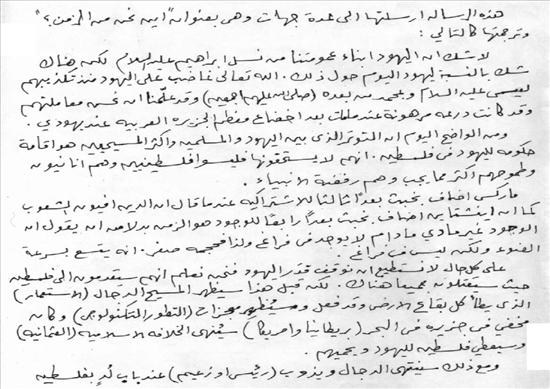 هذه الرسالة ارسلتها الى عدة جهات وهى بعنوان "اين نحن من الزمن؟"
وترجمتها كالتالي :
لا شك ان اليهود ابناء عمومتنا من نسل ابراهيم عليه السلام لكن هناك
شك بالنسبة لليهود اليوم حول ذلك. الله تعالى غاضب على اليهود منذ تكذيبهم
لعيسى عليه السلام ومحمد من بعده (صلى الله عليهم اجمعين) وقد علّمنا ان نحسن معاملتهم
وقد كانت درعه مرهونة عندما مات بعد اخضاع معظم الجزيرة العربية عند يهودي.
ومن الواضح اليوم ان التوتر الذى بين اليهود والمسلمين واكثر المسيحيين هو اقامة
حكومه لليهود فى فلسطين. انهم لا يستحقونها فليسوا فلسطينيين وهم انانيون
وطموحهم اكثر مما يجب وهم رفضة الانبياء.
ماركس اضاف بخبث بعدًا ثالثا للاشتراكية عندما قال ان الدين افيون الشعوب
كما ان اينشتاين اضاف بخبث بعدًا رابعًا للوجود هو الزمن بدلا من ان يقول ان
الوجود غير مادي مادام لا يوجد فى فراغ ولذا فحجمه صفر. انه يتسع بسرعة
الضوء ولكن ليس فى فراغ.
على كل حال لا نستطيع ان نوقف قدر اليهود فنحن نعلم انهم سيقدمون الى فلسطين
حيث سيقتلون جميعا هناك. لكن قبل هذا سيظهر المسيح الدجال (الاستعمار)
الذى يطأ كل بقاع الارض وقد فعل وستظهر معجزات (التطور التكنولوجي) وكان
مخفي فى جزيره فى البحر (بريطانيا وامريكا) سينهى الخلافه الاسلاميه (العثمانية)
وسيعطي فلسطين لليهود ويحميهم.
ومع ذلك سينتهى الدجال ويذوب (رئيس او زعيم) عند باب لد بفلسطين